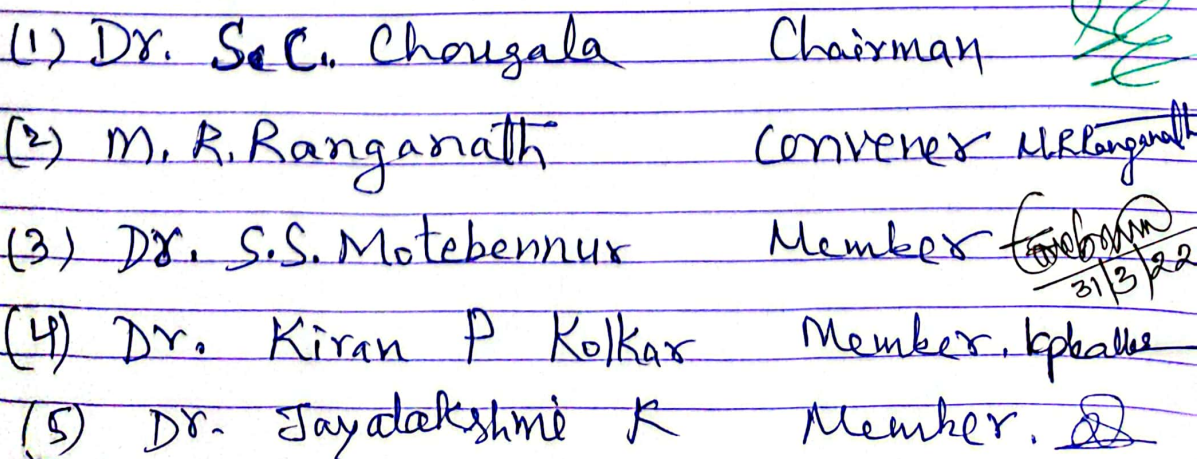 (1) Dr. S.C. Chougala Chairman
(2) M. R. Ranganath Convener M R Ranganath
(3) Dr. S.S. Motebennur Member 31/3/22
(4) Dr. Kiran P Kolkar Member.
(5) Dr. Jayalakshmi K Member.